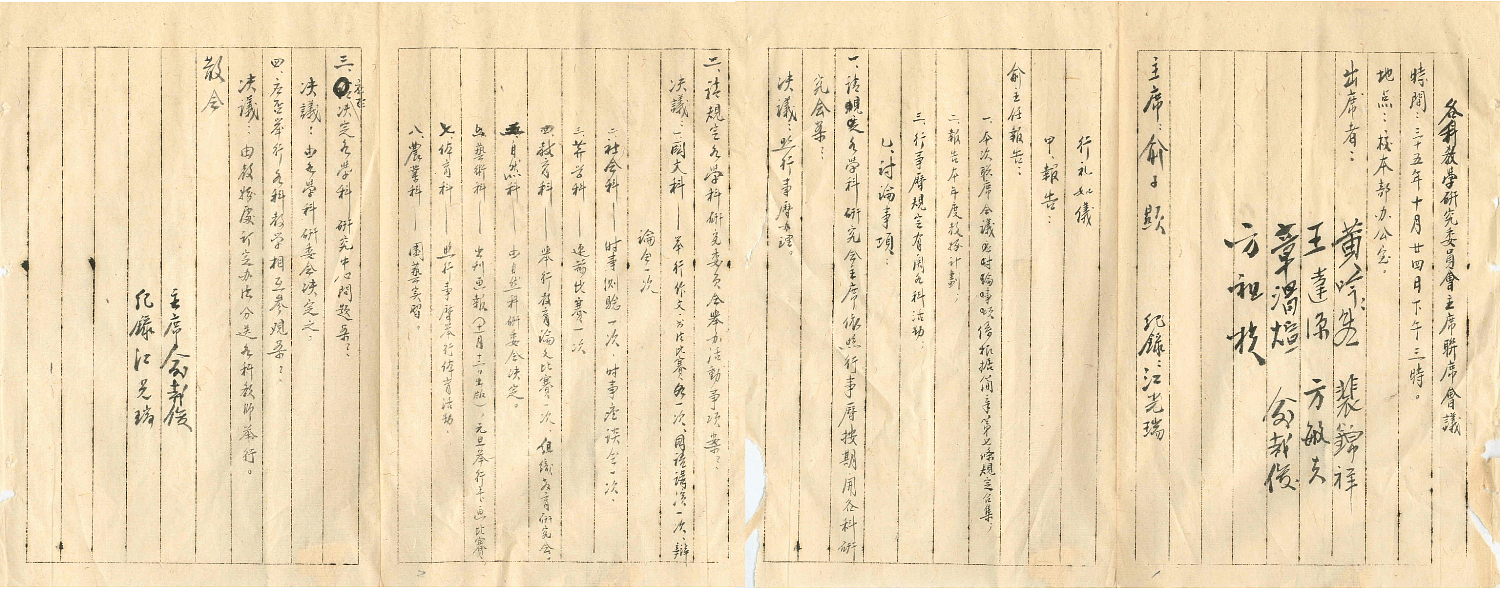 各科教學研究委員會主席聯席會議
時間：三十五年十月廿四日下午三時。
地点：校本部办公室。
出席者：
黃吟 裴錦祥
王達 方敏夫
章 俞載俊
方祖
主席：俞子 紀錄：江光瑞
行礼如儀
甲、報告：
俞主任報告：
一、本次联席会議 討論事項係根据简章第七條規定召集，
二、報告本年度教務計劃，
三、行事曆規定有関各科活动，
乙、討論事項：
一、請規定各学科研究会主席依照行事曆按期開各科研
究会案：
決議：照行事曆办理。
二、請規定各学科研究委員会举办活動事項案：
決議：一、國文科 举行作文、书法比賽各一次、国語講演一次、辯
論会一次
二、社会科——时事測驗一次，时事座談会一次，
三、算学科——速 比賽一次
四、教育科——举行教育論文比賽一次，組織教育研究会，
五、自然科——由自然科研委会決定。
六、藝術科——出刊画報（十一月十二日出版），元旦举行 画比賽，
七、体育科——照行事曆举行体育活动
八、農業科——園藝实習。
三、 決定各学科研究中心問題案：
決議：由各学科研委会決定之，
四、应否举行各科教学相互参观案：
決議：由教務處訂定办法分送各科教師举行。
散会
主席 俞載俊
紀錄 江光瑞